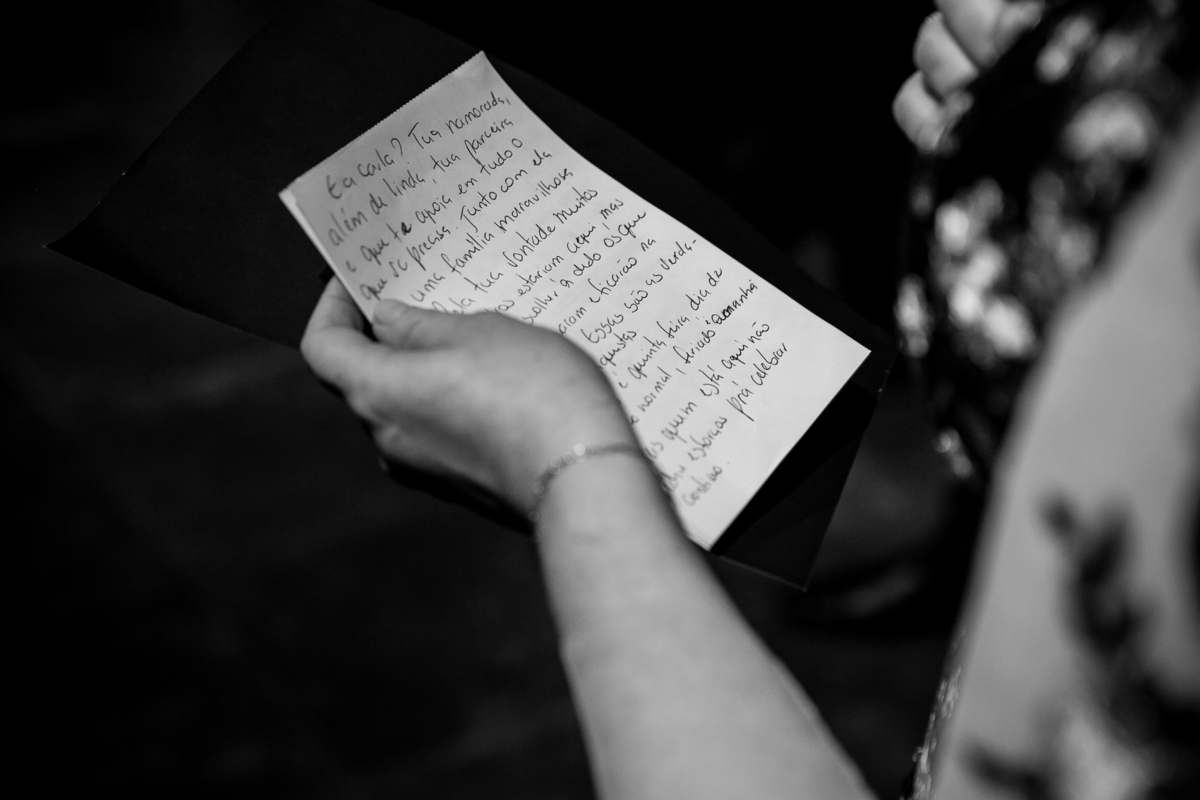 E a Carla? Tua namorada,
além de linda, tua parceira
e que te apoia em tudo o
que se precisa. Junto com ela
uma família maravilhosa,
tua vontade muitos
estariam aqui, mas
à dedo os que
e ficarão na
Essas são as verda-
é quinta feira, dia de
normal, feriado é amanhã
quem está aqui não
esforços prá celebrar
contigo.